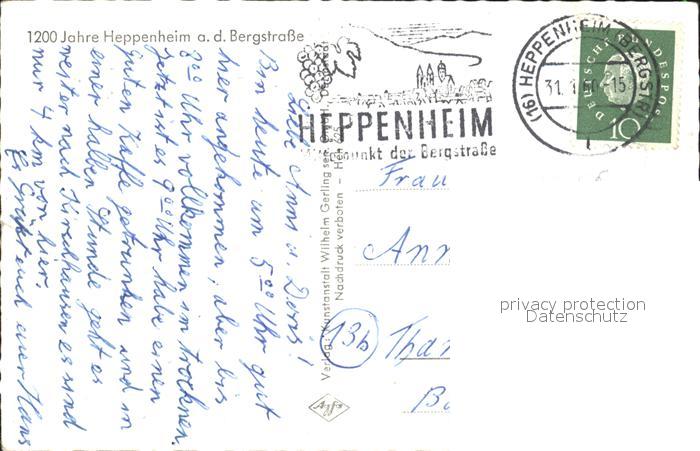 1200 Jahre Heppenheim a. d. Bergstraße
HEPPENHEIM
punkt der Bergstraße
(16) HEPPENHEIM (BERGSTR)
31.
15
DEUTSCHE BUNDESPOST
10
Liebe Anni u. Doris!
Bin heute um 5⁰⁰ Uhr gut
hier angekommen, aber bis
8⁰⁰ Uhr vollkommen im trocknen.
Jetzt ist es 9⁰⁰ Uhr habe einen
guten Kaffe getrunken und in
einer halben Stunde geht es
weiter nach Kirschhausen es sind
nur 4 km von hier.
Es Grüßt euch euer Hans
Verlag: Kunstanstalt Wilhelm Gerling
Nachdruck verboten –
Agfa
Frau
Ann
13b
Than
privacy protection
Datenschutz